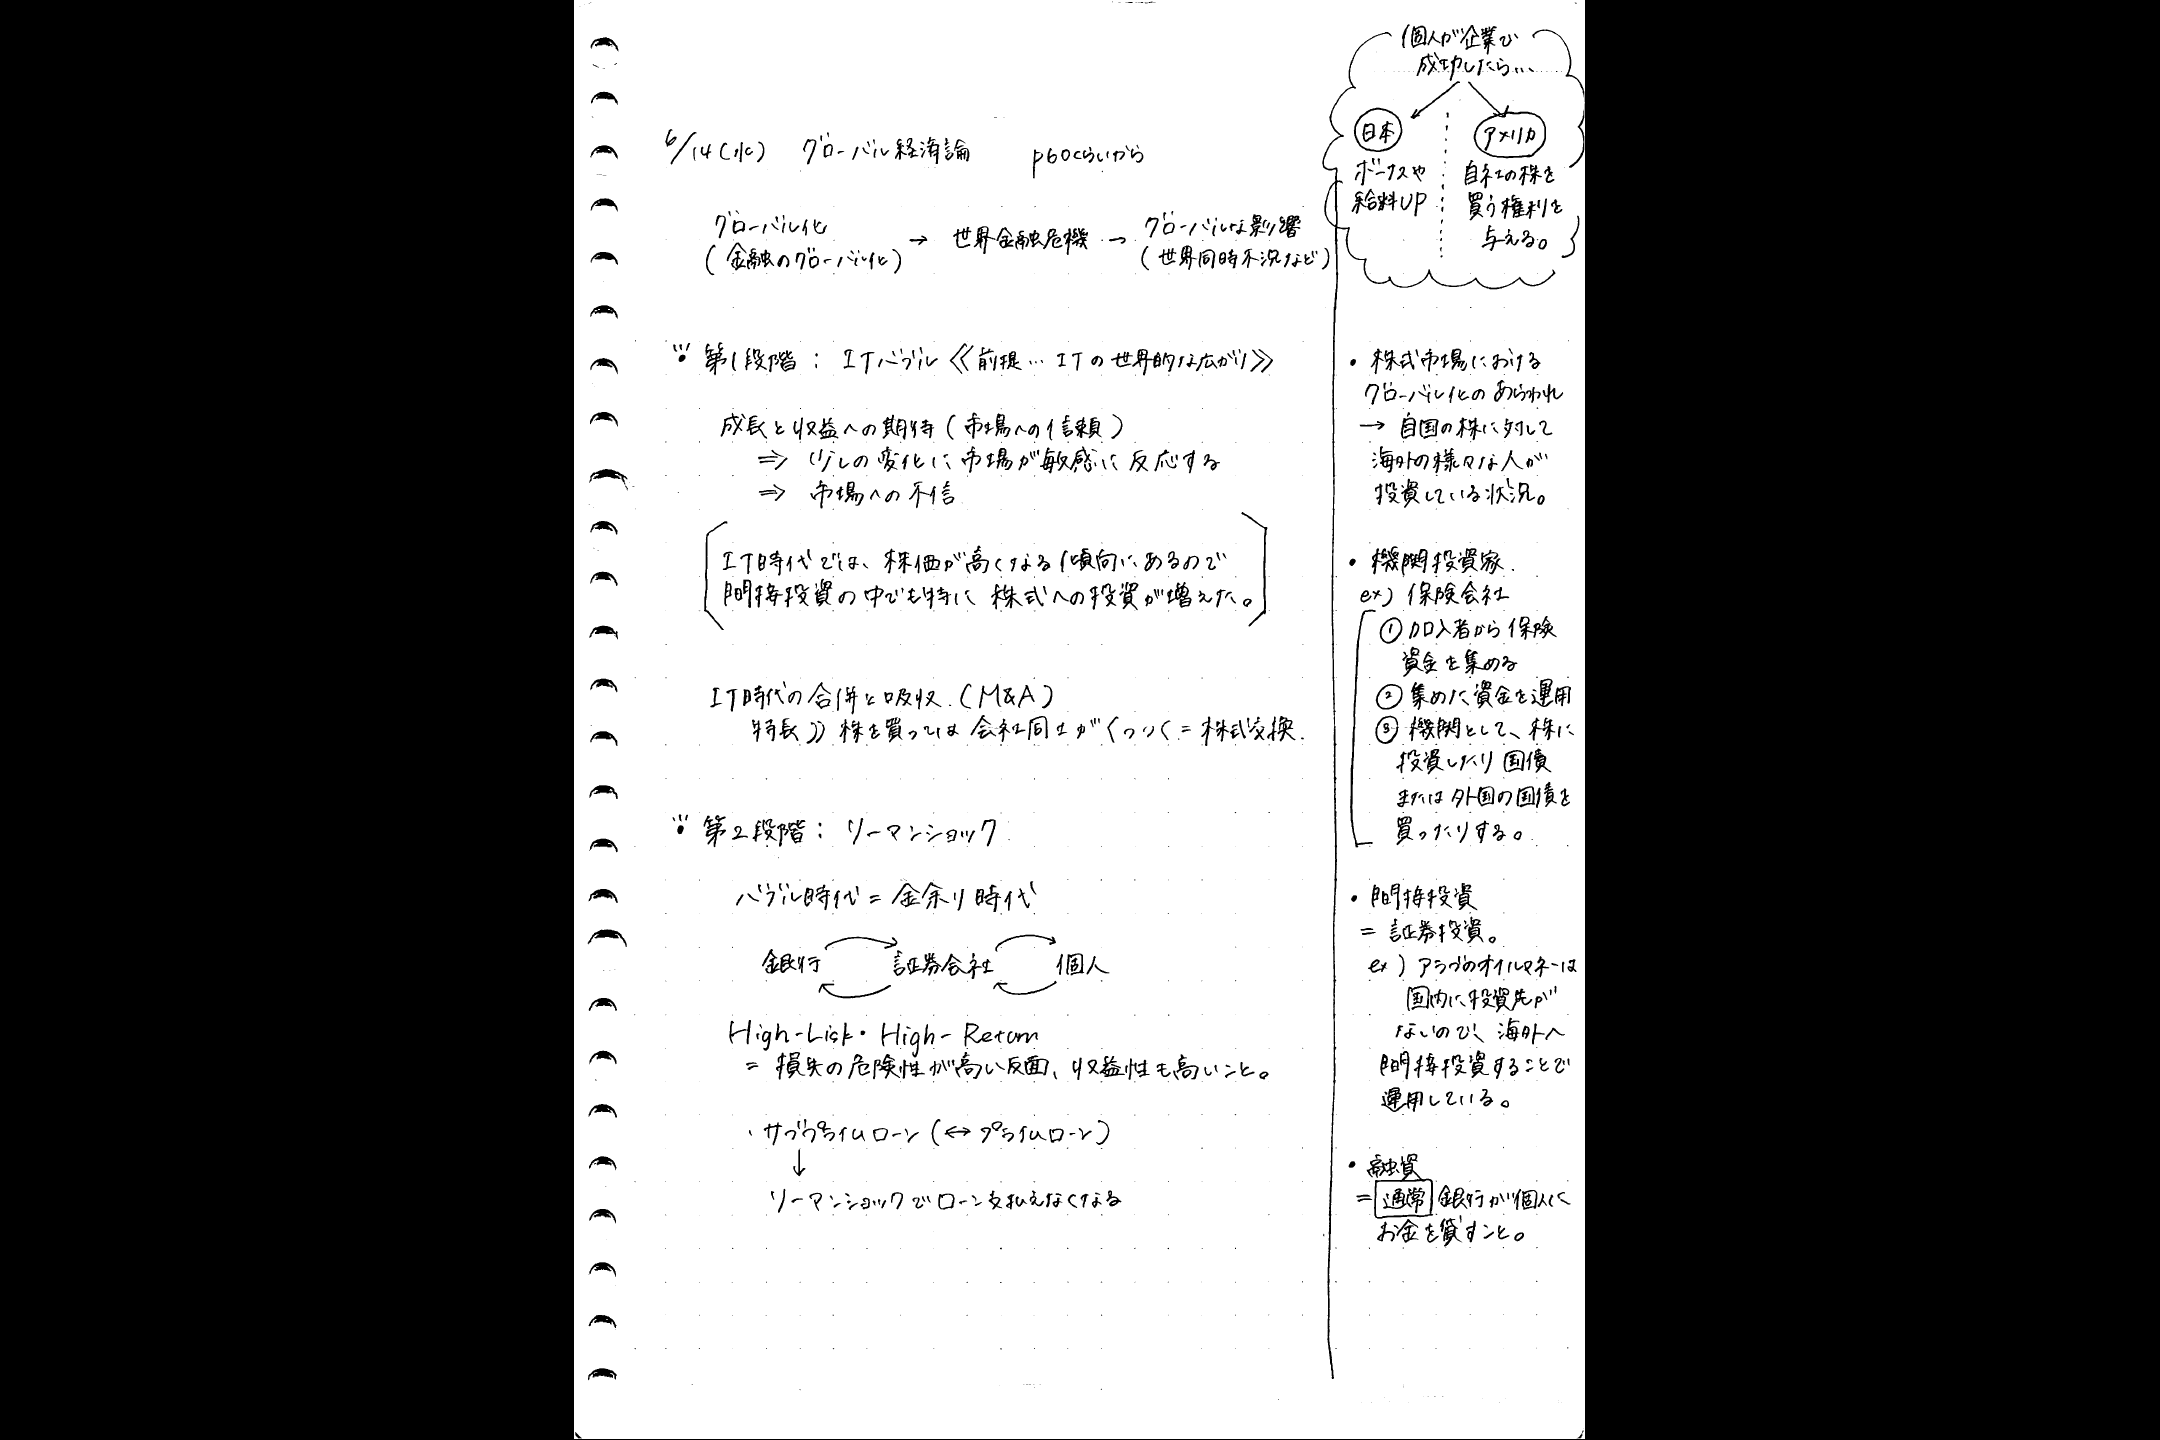 6/14(水) グローバル経済論 p60くらいから
グローバル化
(金融のグローバル化)
→ 世界金融危機 →
グローバルな影響
(世界同時不況など)
第1段階: ITバブル《前提… ITの世界的な広がり》
成長と収益への期待(市場への信頼)
⇒ 少しの変化に市場が敏感に反応する
⇒ 市場への不信
IT時代では、株価が高くなる傾向にあるので
間接投資の中でも特に株式への投資が増えた。
IT時代の合併と吸収.(M&A)
特長》株を買っては会社同士がくっつく=株式交換.
第2段階: リーマンショック
バブル時代=金余り時代
銀行 証券会社 個人
High-Lisk・High-Return
= 損失の危険性が高い反面、収益性も高いこと。
・サブプライムローン(↔プライムローン)
↓
リーマンショックでローン支払えなくなる
個人が企業で
成功したら…
日本
ボーナスや
給料UP
アメリカ
自社の株を
買う権利を
与える。
・株式市場における
グローバル化のあらわれ
→ 自国の株に対して
海外の様々な人が
投資している状況。
・機関投資家.
ex) 保険会社
①加入者から保険
資金を集める
②集めた資金を運用
③機関として、株に
投資したり国債
または外国の国債を
買ったりする。
・間接投資
= 証券投資。
ex) アラブのオイルマネーは
国内に投資先が
ないので、海外へ
間接投資することで
運用している。
・融資
=通常 銀行が個人に
お金を貸すこと。